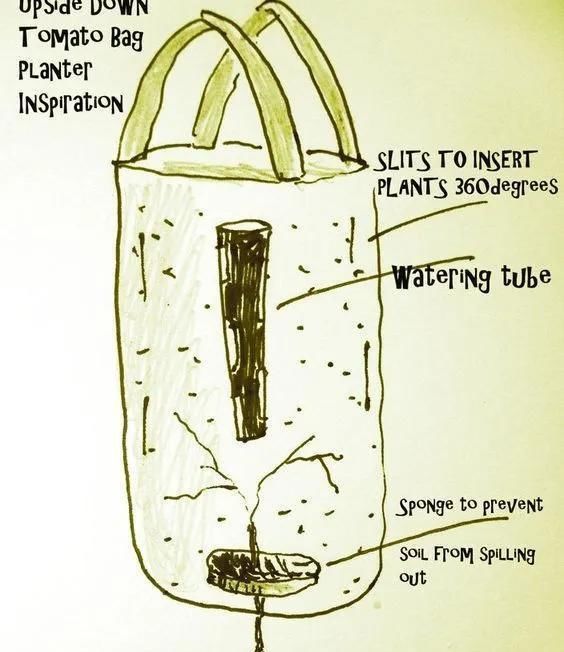 Upside Down
Tomato Bag
Planter
Inspiration
SLITS TO INSERT
PLANTS 360degrees
Watering tube
Sponge to prevent
Soil From Spilling
out